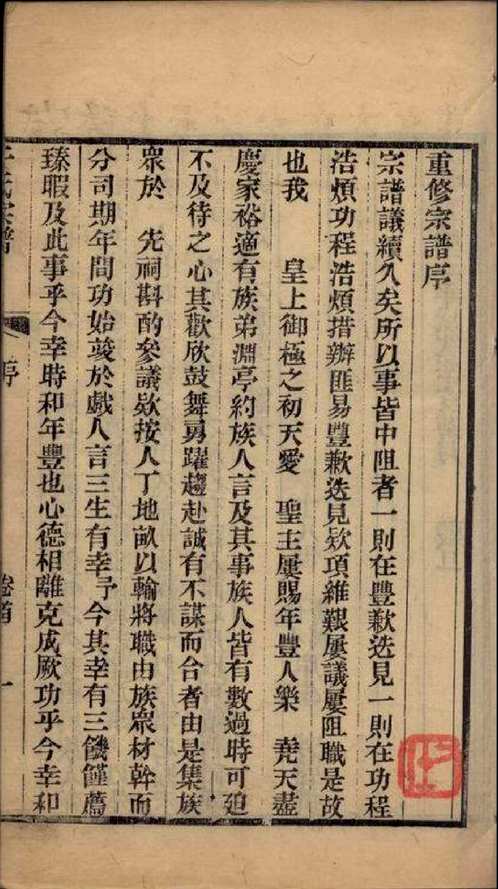 重修宗譜序
宗譜議續久矣所以事皆中阻者一則在豐歉迭見一則在功程
浩煩功程浩煩措辦匪易豐歉迭見欵項維艱屢議屢阻職是故
也我　皇上御極之初天愛　聖主屢賜年豐人樂　堯天盡
慶家裕適有族弟淵亭約族人言及其事族人皆有數過時可追
不及待之心其歡欣鼓舞勇躍趨赴誠有不謀而合者由是集族
眾於　先祠斟酌參議欵按人丁地畝以輸將職由族眾材幹而
分司期年間功始竣於戲人言三生有幸予今其幸有三饑饉薦
臻暇及此事乎今幸時和年豐也心德相離克成厥功乎今幸和
氏宗譜
序
卷首
一